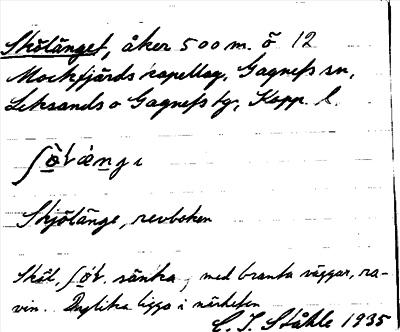 Skölänget, åker 500 m. ö 12
Mockfjärds kapellag, Gagnefs sn,
Leksands o Gagnefs tg, Kopp. l.
Skjölänge, revboken
Sköl, sänka, med branta väggar, ra-
vin. Dylika ligga i närheten
C. I. Ståhle 1935